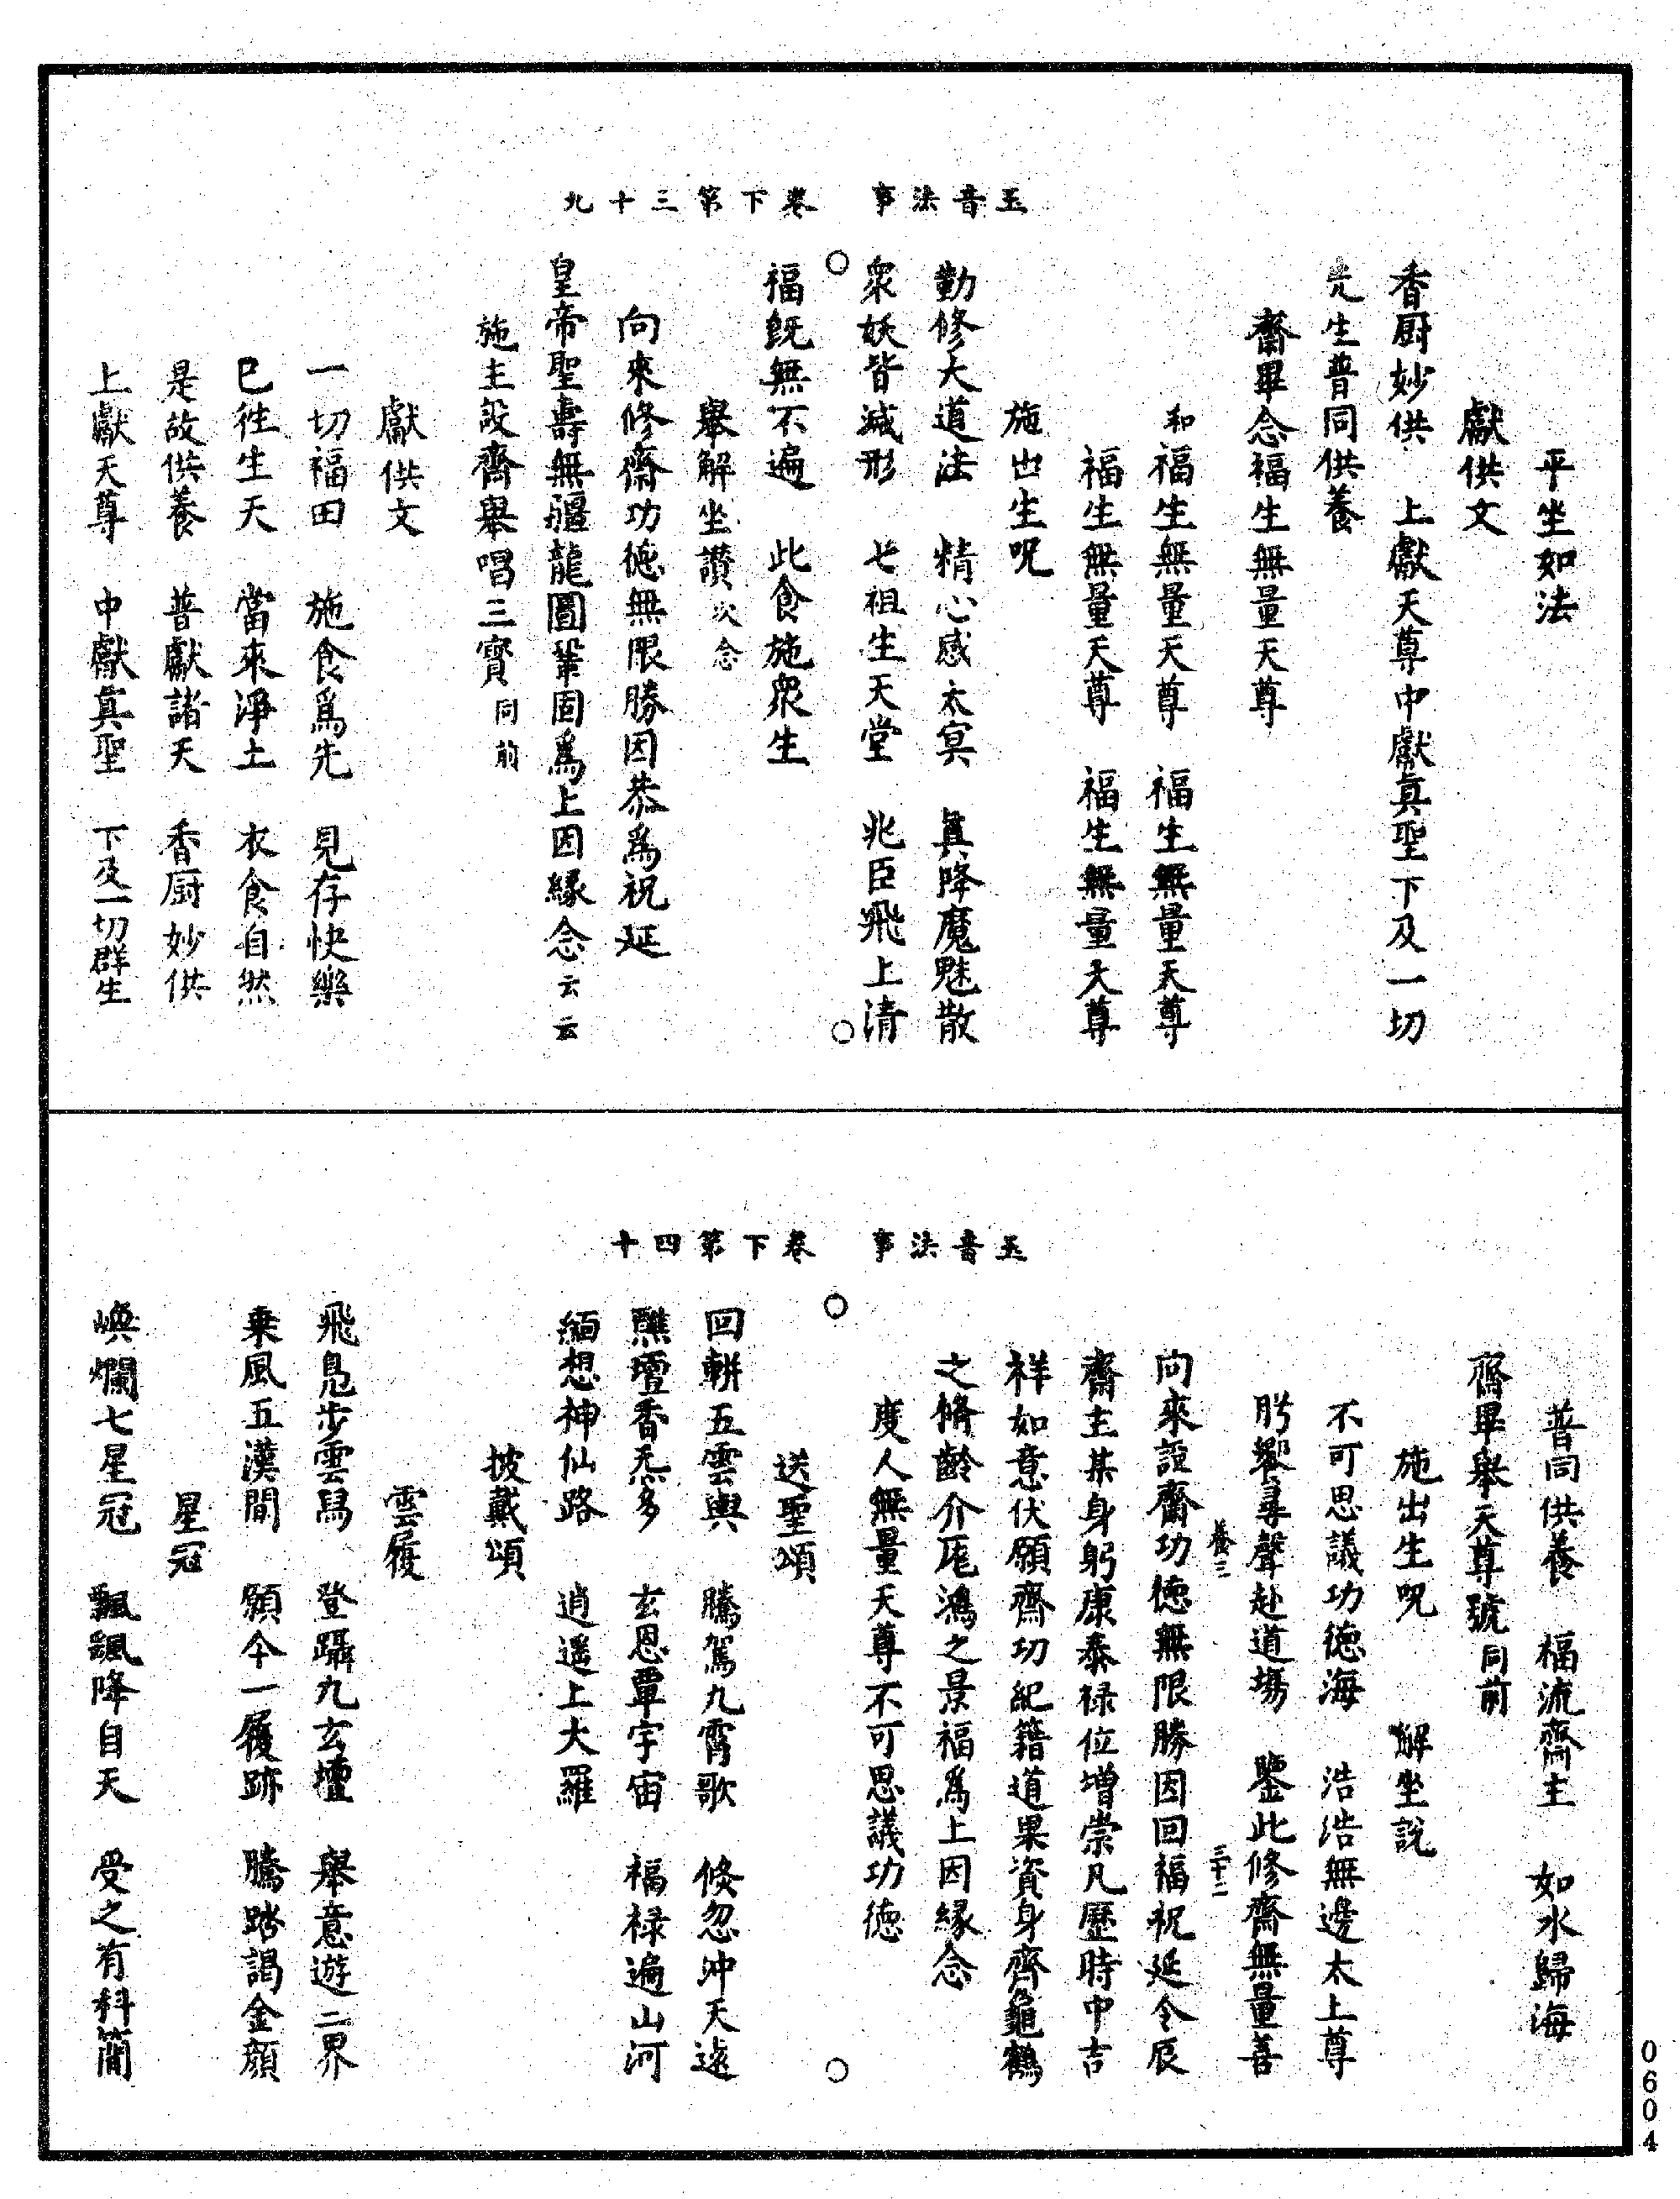 玉音法事　卷下第三十九
平坐如法
獻供文
香厨妙供　上獻天尊中獻真聖下及一切
先生普同供養
齋畢念福生無量天尊
和福生無量天尊　福生無量天尊
福生無量天尊　福生無量天尊
施出生呪
勤修大道法　精心感太冥　真降魔魅散
衆妖皆滅形　七祖生天堂　兆臣飛上清
福既無不遍　此食施衆生
舉解坐讚次念
向來修齋功德無限勝因恭爲祝延
皇帝聖壽無疆龍圖鞏固爲上因緣念云云
施主設齋舉唱三寶同前
獻供文
一切福田　施食爲先　見存快樂
已往生天　當來淨土　衣食自然
是故供養　普獻諸天　香厨妙供
上獻天尊　中獻真聖　下及一切群生
玉音法事　卷下第四十
普同供養　福流齋主　如水歸海
齋畢舉天尊號同前
施出生呪　解坐説
不可思議功德海　浩浩無邊太上尊
肹蠁尋聲赴道場　鑒此修齋無量善
養三　三十二
向來設齋功德無限勝因回福祝延令辰
齋主某身躬康泰禄位增崇凡歷時中吉
祥如意伏願齊功紀籍道果資身齊龜鶴
之脩齡介厖鴻之景福爲上因緣念
度人無量天尊不可思議功德
送聖頌
回軿五雲輿　騰駕九霄歌　倏忽沖天遠
醮壇香炁多　玄恩覃宇宙　福禄遍山河
緬想神仙路　逍遥上大羅
披戴頌
雲履
飛舄步雲舄　登躡九玄壇　舉意遊二界
乘風五漢間　願今一履跡　騰踏謁金顔
星冠
煥爛七星冠　飄飄降自天　受之有科簡
0604